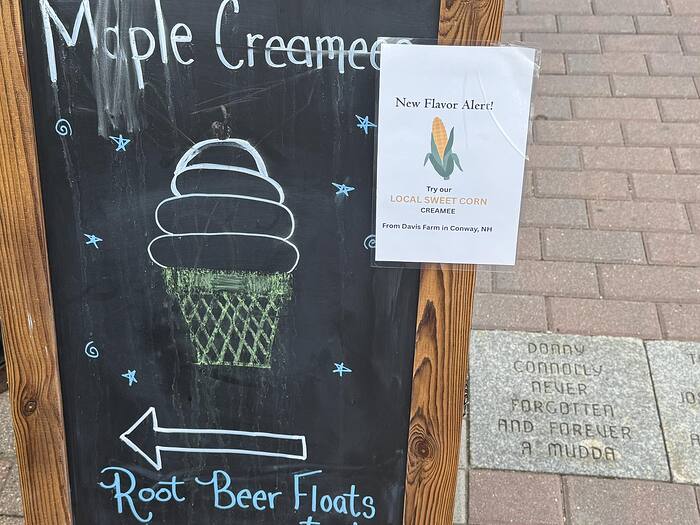 Maple Creamee
New Flavor Alert!
Try our
LOCAL SWEET CORN
CREAMEE
From Davis Farm in Conway, NH
Root Beer Floats
DONNY
CONNOLLY
NEVER
FORGOTTEN
AND FOREVER
A MUDDA